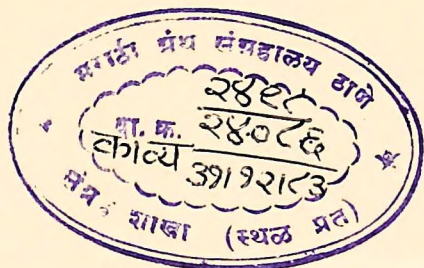 मराठी ग्रंथ संग्रहालय ठाणे
२४९८
वा. क्र. २४०८६
काव्य ३१।१२।८३
संदर्भ शाखा (स्थळ प्रत)